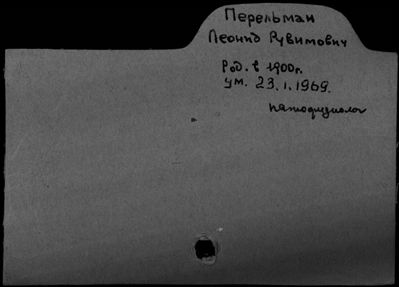 Перельман
Леонид Рувимович
Род. в 1900г.
ум. 23.1.1969.
патофизиолог